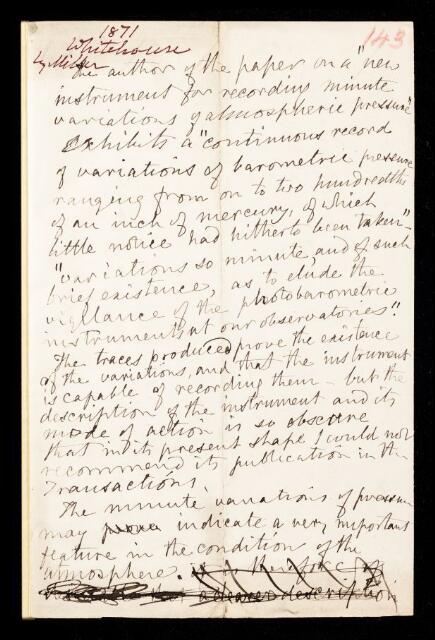 1871
143
Whitehouse
by Miller
The author of the paper on a "new
instrument for recording minute
variations of atmospheric pressure"
Exhibits a "continuous record
of variations of barometric pressure
ranging from on to two hundredths
of an inch of mercury, of which
little notice had hitherto been taken"—
"variations so minute, and of such
brief existence, as to elude the
vigilance of the photobarometric
instruments at our observatories".
The traces produced prove the existence
of the variations, and that the instrument
is capable of recording them — but the
description of the instrument and its
mode of action is so obscure
that in its present shape I could not
recommend its publication in the
Transactions.
The minute variations of pressure
may indicate a very important
feature in the condition of the
atmosphere.
a clearer description